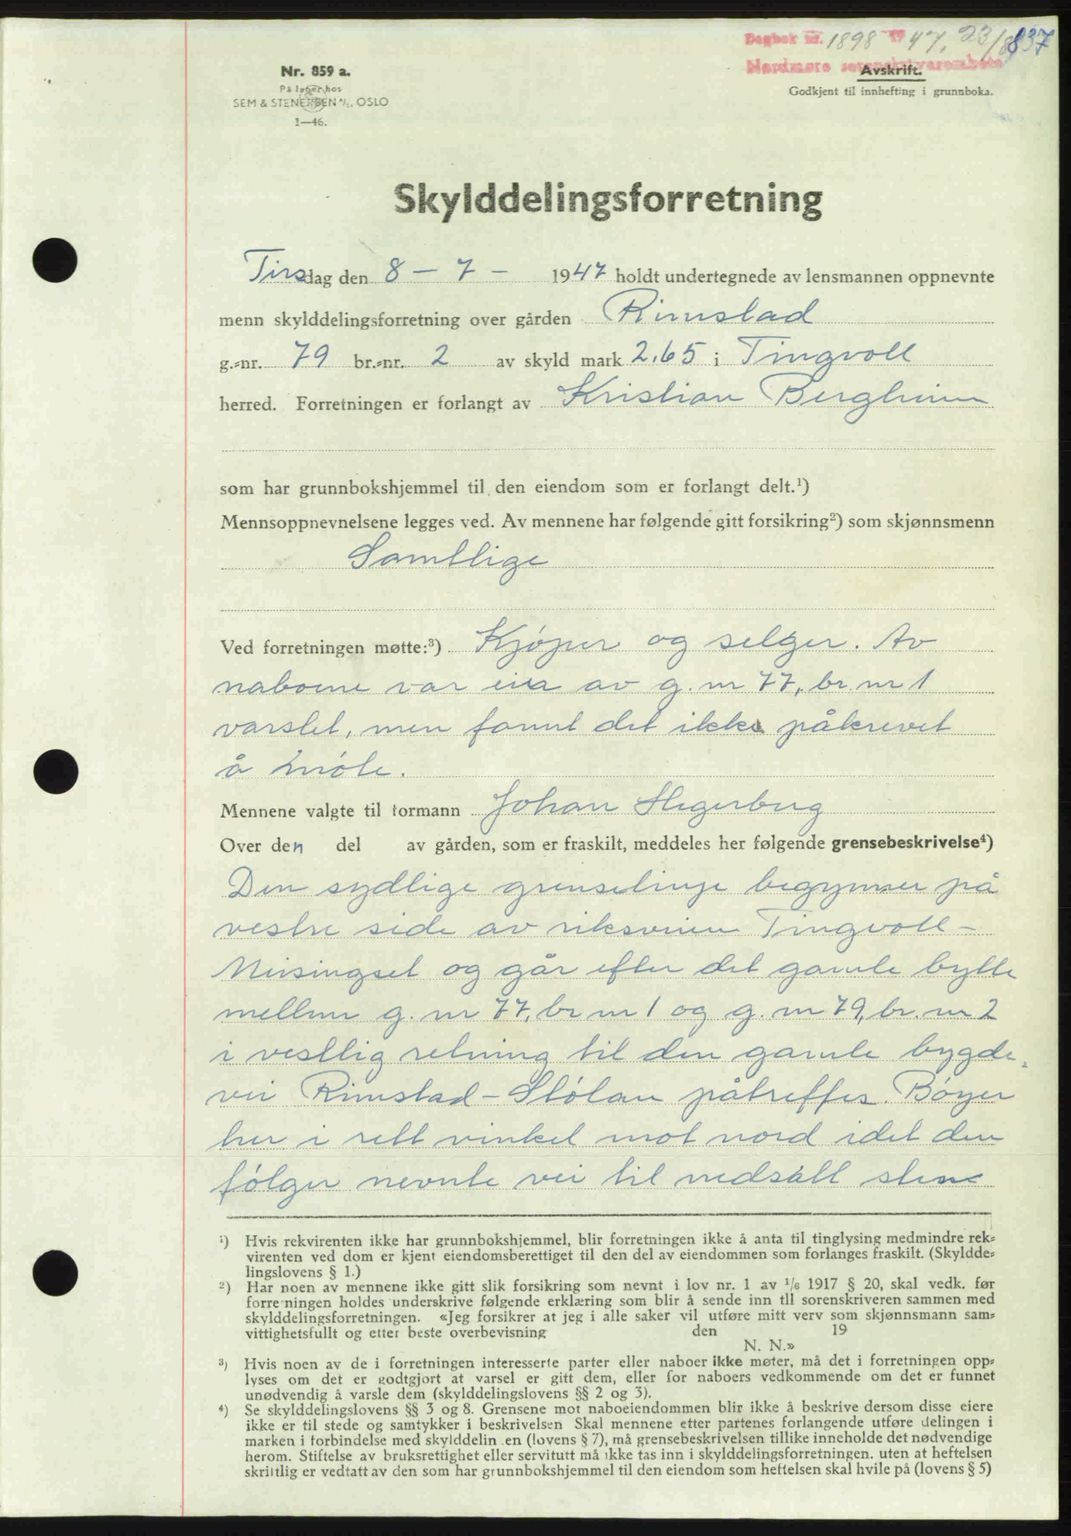 Dagbok nr. 1898 19 47, 23/8 837
Nordmøre sorenskriverembete
Avskrift.
Godkjent til innhefting i grunnboka.
Nr. 859 a.
På lager hos
SEM & STENERSEN A/S, OSLO
1—46.
Skylddelingsforretning
Tirsdag den 8 – 7 – 1947 holdt undertegnede av lensmannen oppnevnte
menn skylddelingsforretning over gården Rimstad
g.-nr. 79 br.-nr. 2 av skyld mark 2,65 i Tingvoll
herred. Forretningen er forlangt av Kristian Bergheim
som har grunnbokshjemmel til den eiendom som er forlangt delt.¹)
Mennsoppnevnelsene legges ved. Av mennene har følgende gitt forsikring²) som skjønnsmenn
Samtlige
Ved forretningen møtte:³) Kjøper og selger. Av
naboene var eier av g.nr 77, br.nr 1
varslet, men fannt det ikke påkrevet
å møte.
Mennene valgte til formann Johan Hegerberg
Over den del av gården, som er fraskilt, meddeles her følgende grensebeskrivelse⁴)
Den sydlige grenselinje begynner på
vestre side av riksveien Tingvoll –
Meisingset og går efter det gamle bytte
mellem g. nr 77, br nr 1 og g. nr 79, br. nr 2
i vestlig retning til den gamle bygde-
vei Rimstad – Stølan påtreffes. Bøyer
her i rett vinkel mot nord idet den
følger nevnte vei til nedsatt stene
¹) Hvis rekvirenten ikke har grunnbokshjemmel, blir forretningen ikke å anta til tinglysing medmindre rek-
virenten ved dom er kjent eiendomsberettiget til den del av eiendommen som forlanges fraskilt. (Skyldde-
lingslovens § 1.)
²) Har noen av mennene ikke gitt slik forsikring som nevnt i lov nr. 1 av ¹/6 1917 § 20, skal vedk. før
forretningen holdes underskrive følgende erklæring som blir å sende inn til sorenskriveren sammen med
skylddelingsforretningen. «Jeg forsikrer at jeg i alle saker vil utføre mitt verv som skjønnsmann sam-
vittighetsfullt og etter beste overbevisning den 19
N. N.»
³) Hvis noen av de i forretningen interesserte parter eller naboer ikke møter, må det i forretningen opp-
lyses om det er godtgjort at varsel er gitt dem, eller for naboers vedkommende om det er funnet
unødvendig å varsle dem (skylddelingslovens §§ 2 og 3).
⁴) Se skylddelingslovens §§ 3 og 8. Grensene mot naboeiendommen blir ikke å beskrive dersom disse eiere
ikke er til stede og samtykker i beskrivelsen Skal mennene etter partenes forlangende utføre delingen i
marken i forbindelse med skylddelingen (lovens § 7), må grensebeskrivelsen tillike inneholde det nødvendige
herom. Stiftelse av bruksrettighet eller servitutt må ikke tas inn i skylddelingsforretningen. uten at heftelsen
skriftlig er vedtatt av den som har grunnbokshjemmel til den eiendom som heftelsen skal hvile på (lovens § 5)